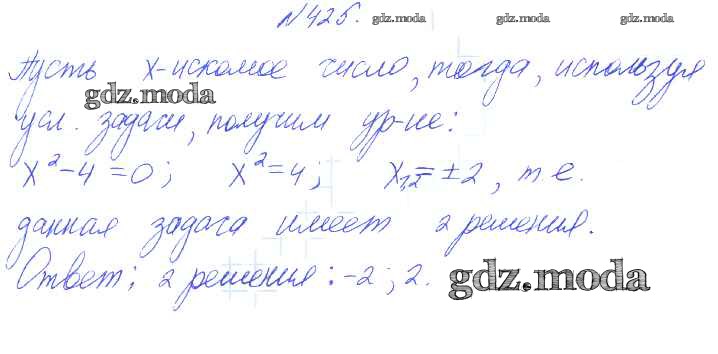 №425. gdz.moda gdz.moda gdz.moda
Пусть x-искомое число, тогда, используя
gdz.moda
усл. задачи, получим ур-ие:
x²-4=0; x²=4; x₁,₂=±2, т.е.
данная задача имеет 2 решения.
Ответ: 2 решения: -2; 2. gdz.moda